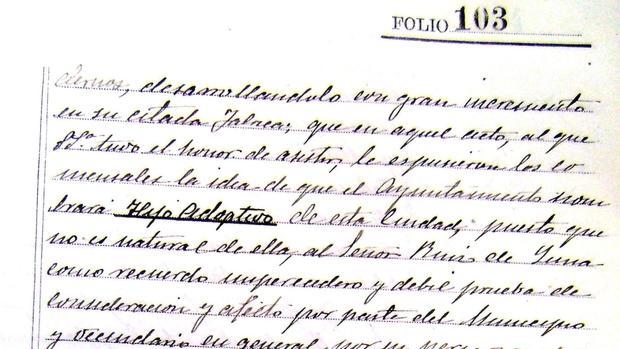 FOLIO 103
dernos, desarrollandolo con gran incremento
en su citada Fabrica; que en aquel acto, al que
S.Sª tuvo el honor de asistir, le expusieron los co
mensales la idea de que el Ayuntamiento nom
brara Hijo Adoptivo de esta Ciudad, puesto que
no es natural de ella, al Señor Ruiz de Luna
como recuerdo imperecedero y debil prueba de
consideración y afecto por parte del Municipio
y vecindario en general, por su